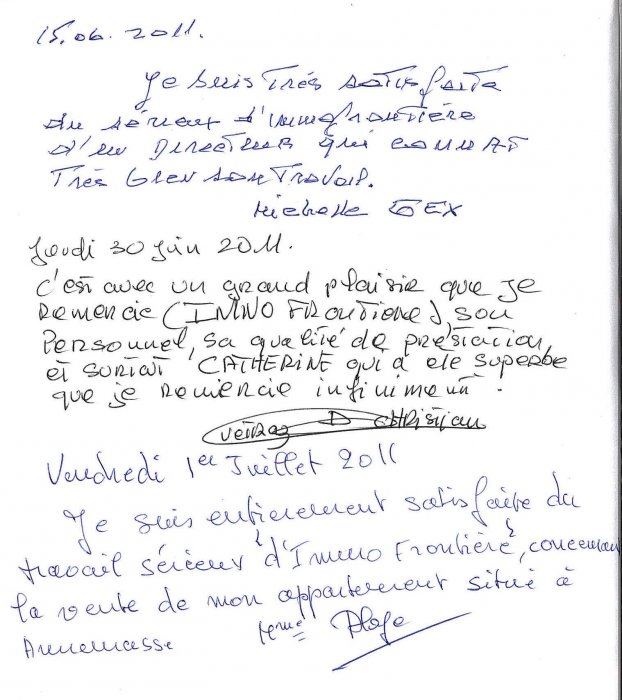 15.06.2011.
Je suis très satisfaite
du sérieux d'immofrontière
d'un Directeur qui connaît
Très bien son Travail.
Michelle GEX
Jeudi 30 juin 2011.
C'est avec un grand plaisir que je
Remercie (IMMO FRONTIERE), son
Personnel, sa qualité de prestation,
et surtout CATHERINE qui a été superbe
que je remercie infiniment.
D CHRISTIAN
Vendredi 1er Juillet 2011
Je suis entièrement satisfaite du
travail sérieux d'Immo Frontière, concernant
la vente de mon appartement situé à
Annemasse Mme Plage